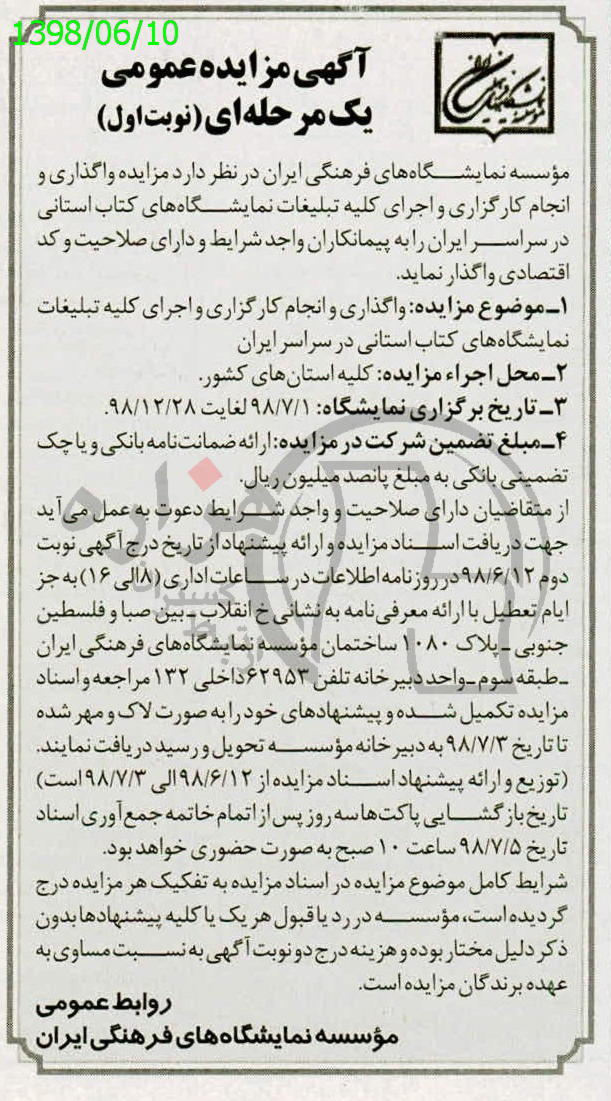 1398/06/10
آگهی مزایده عمومی
یک مرحله‌ای (نوبت اول)
مؤسسه نمایشگاه‌های فرهنگی ایران در نظر دارد مزایده واگذاری و
انجام کارگزاری و اجرای کلیه تبلیغات نمایشگاه‌های کتاب استانی
در سراسر ایران را به پیمانکاران واجد شرایط و دارای صلاحیت و کد
اقتصادی واگذار نماید.
۱ـ موضوع مزایده: واگذاری و انجام کارگزاری و اجرای کلیه تبلیغات
نمایشگاه‌های کتاب استانی در سراسر ایران
۲ـ محل اجراء مزایده: کلیه استان‌های کشور.
۳ـ تاریخ برگزاری نمایشگاه: ۹۸/۷/۱ لغایت ۹۸/۱۲/۲۸.
۴ـ مبلغ تضمین شرکت در مزایده: ارائه ضمانت‌نامه بانکی و یا چک
تضمینی بانکی به مبلغ پانصد میلیون ریال.
از متقاضیان دارای صلاحیت و واجد شرایط دعوت به عمل می‌آید
جهت دریافت اسناد مزایده و ارائه پیشنهاد از تاریخ درج آگهی نوبت
دوم ۹۸/۶/۱۲ در روزنامه اطلاعات در ساعات اداری (۸ الی ۱۶) به جز
ایام تعطیل با ارائه معرفی‌نامه به نشانی خ انقلاب ـ بین صبا و فلسطین
جنوبی ـ پلاک ۱۰۸۰ ساختمان مؤسسه نمایشگاه‌های فرهنگی ایران
ـ طبقه سوم ـ واحد دبیرخانه تلفن ۶۲۹۵۳ داخلی ۱۳۲ مراجعه و اسناد
مزایده تکمیل شده و پیشنهادهای خود را به صورت لاک و مهر شده
تا تاریخ ۹۸/۷/۳ به دبیرخانه مؤسسه تحویل و رسید دریافت نمایند.
(توزیع و ارائه پیشنهاد اسناد مزایده از ۹۸/۶/۱۲ الی ۹۸/۷/۳ است)
تاریخ بازگشایی پاکت‌ها سه روز پس از اتمام خاتمه جمع‌آوری اسناد
تاریخ ۹۸/۷/۵ ساعت ۱۰ صبح به صورت حضوری خواهد بود.
شرایط کامل موضوع مزایده در اسناد مزایده به تفکیک هر مزایده درج
گردیده است، مؤسسه در رد یا قبول هر یک یا کلیه پیشنهادها بدون
ذکر دلیل مختار بوده و هزینه درج دو نوبت آگهی به نسبت مساوی به
عهده برندگان مزایده است.
روابط عمومی
مؤسسه نمایشگاه‌های فرهنگی ایران